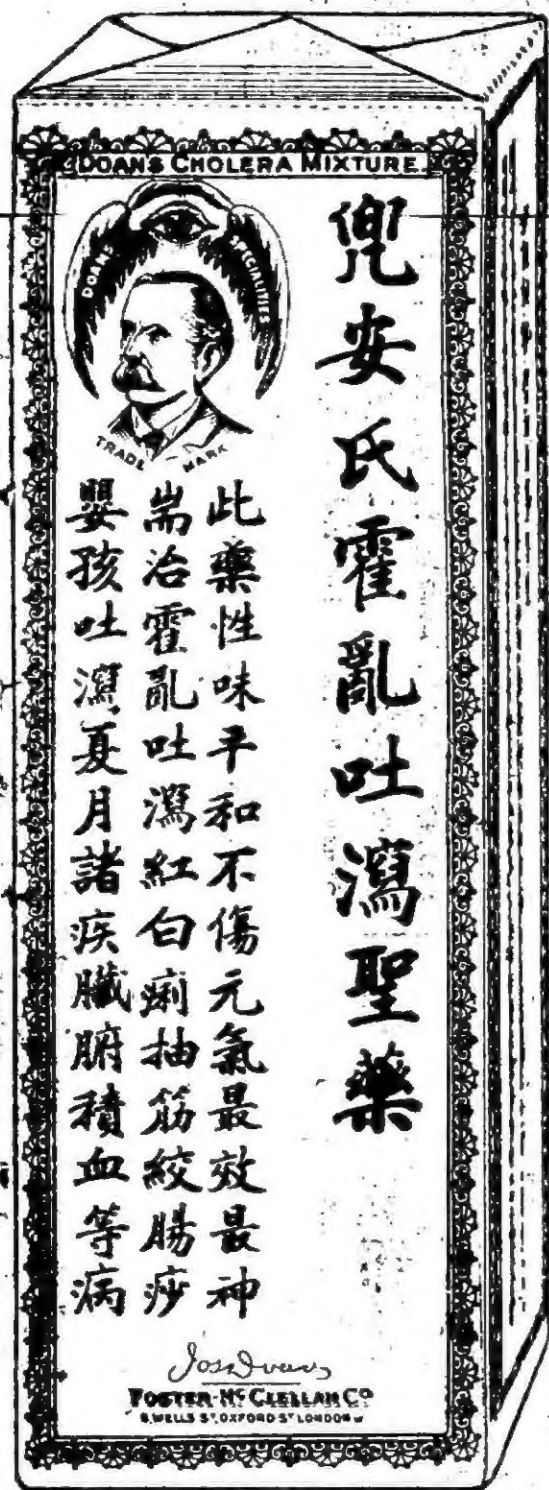 DOANS CHOLERA MIXTURE.
DOANS SPECIALITIES
TRADE MARK
兜安氏霍亂吐瀉聖藥
此藥性味平和不傷元氣最效最神
耑治霍亂吐瀉紅白痢抽筋絞腸痧
嬰孩吐瀉夏月諸疾臟腑積血等病
FOSTER-McCLELLAN Co
8, WELLS ST, OXFORD ST LONDON W